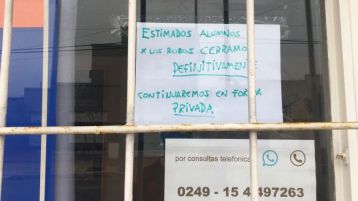 ESTIMADOS ALUMNOS
X LOS ROBOS CERRAMO
DEFINITIVAMENTE
CONTINUAREMOS EN FORMA
PRIVADA
por consultas telefonica
0249 - 15 4 497263